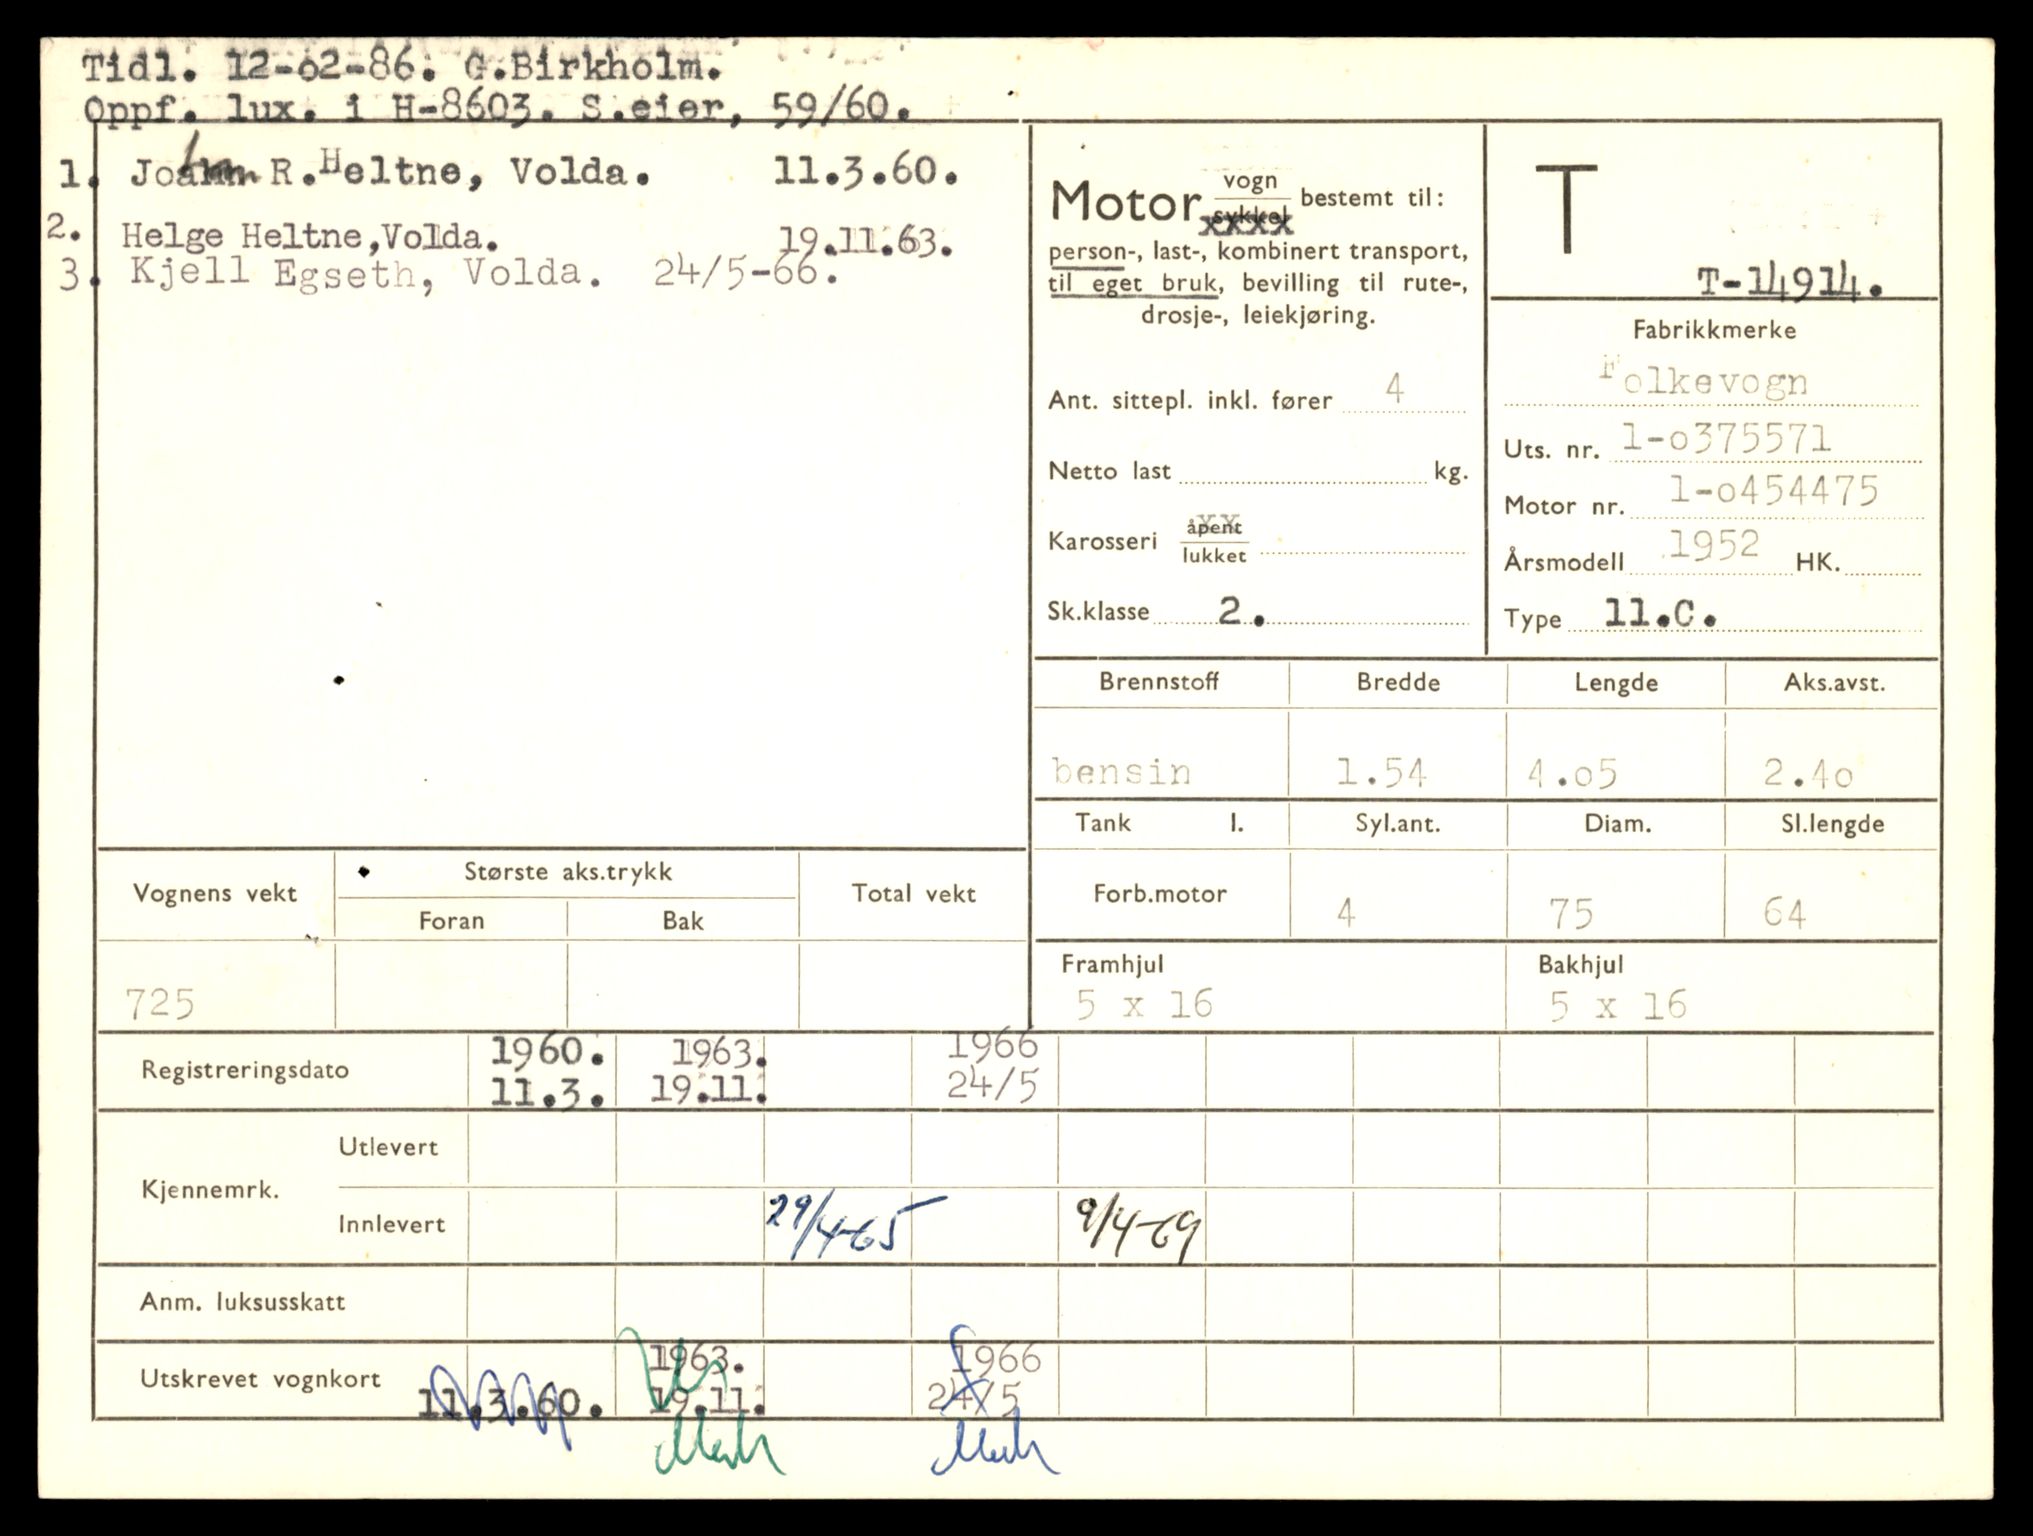 Tidl. 12-62-86. G.Birkholm.
Oppf. lux. i H-8603. S.eier, 59/60.
1. R. Heltne, Volda. 11.3.60.
2. Helge Heltne, Volda. 19.11.63.
3. Kjell Egseth, Volda. 24/5-66.
Motor vogn sykkel bestemt til:
person-, last-, kombinert transport,
til eget bruk, bevilling til rute-,
drosje-, leiekjøring.
Ant. sittepl. inkl. fører 4
Netto last kg.
Karosseri åpent lukket
Sk.klasse 2.
T
T-14914.
Fabrikkmerke
Folkevogn
Uts. nr. 1-o375571
Motor nr. 1-o454475
Årsmodell 1952 HK.
Type 11.C.
Brennstoff Bredde Lengde Aks.avst.
bensin 1.54 4.o5 2.4o
Tank l. Syl.ant. Diam. Sl.lengde
Forb.motor 4 75 64
Framhjul Bakhjul
5 x 16 5 x 16
Vognens vekt Største aks.trykk Total vekt
Foran Bak
725
Registreringsdato 1960. 1963. 1966
11.3. 19.11. 24/5
Kjennemrk. Utlevert
Innlevert 29/4-65 9/4-69
Anm. luksusskatt
Utskrevet vognkort 1963. 1966
11.3.60. 19.11. 24/5